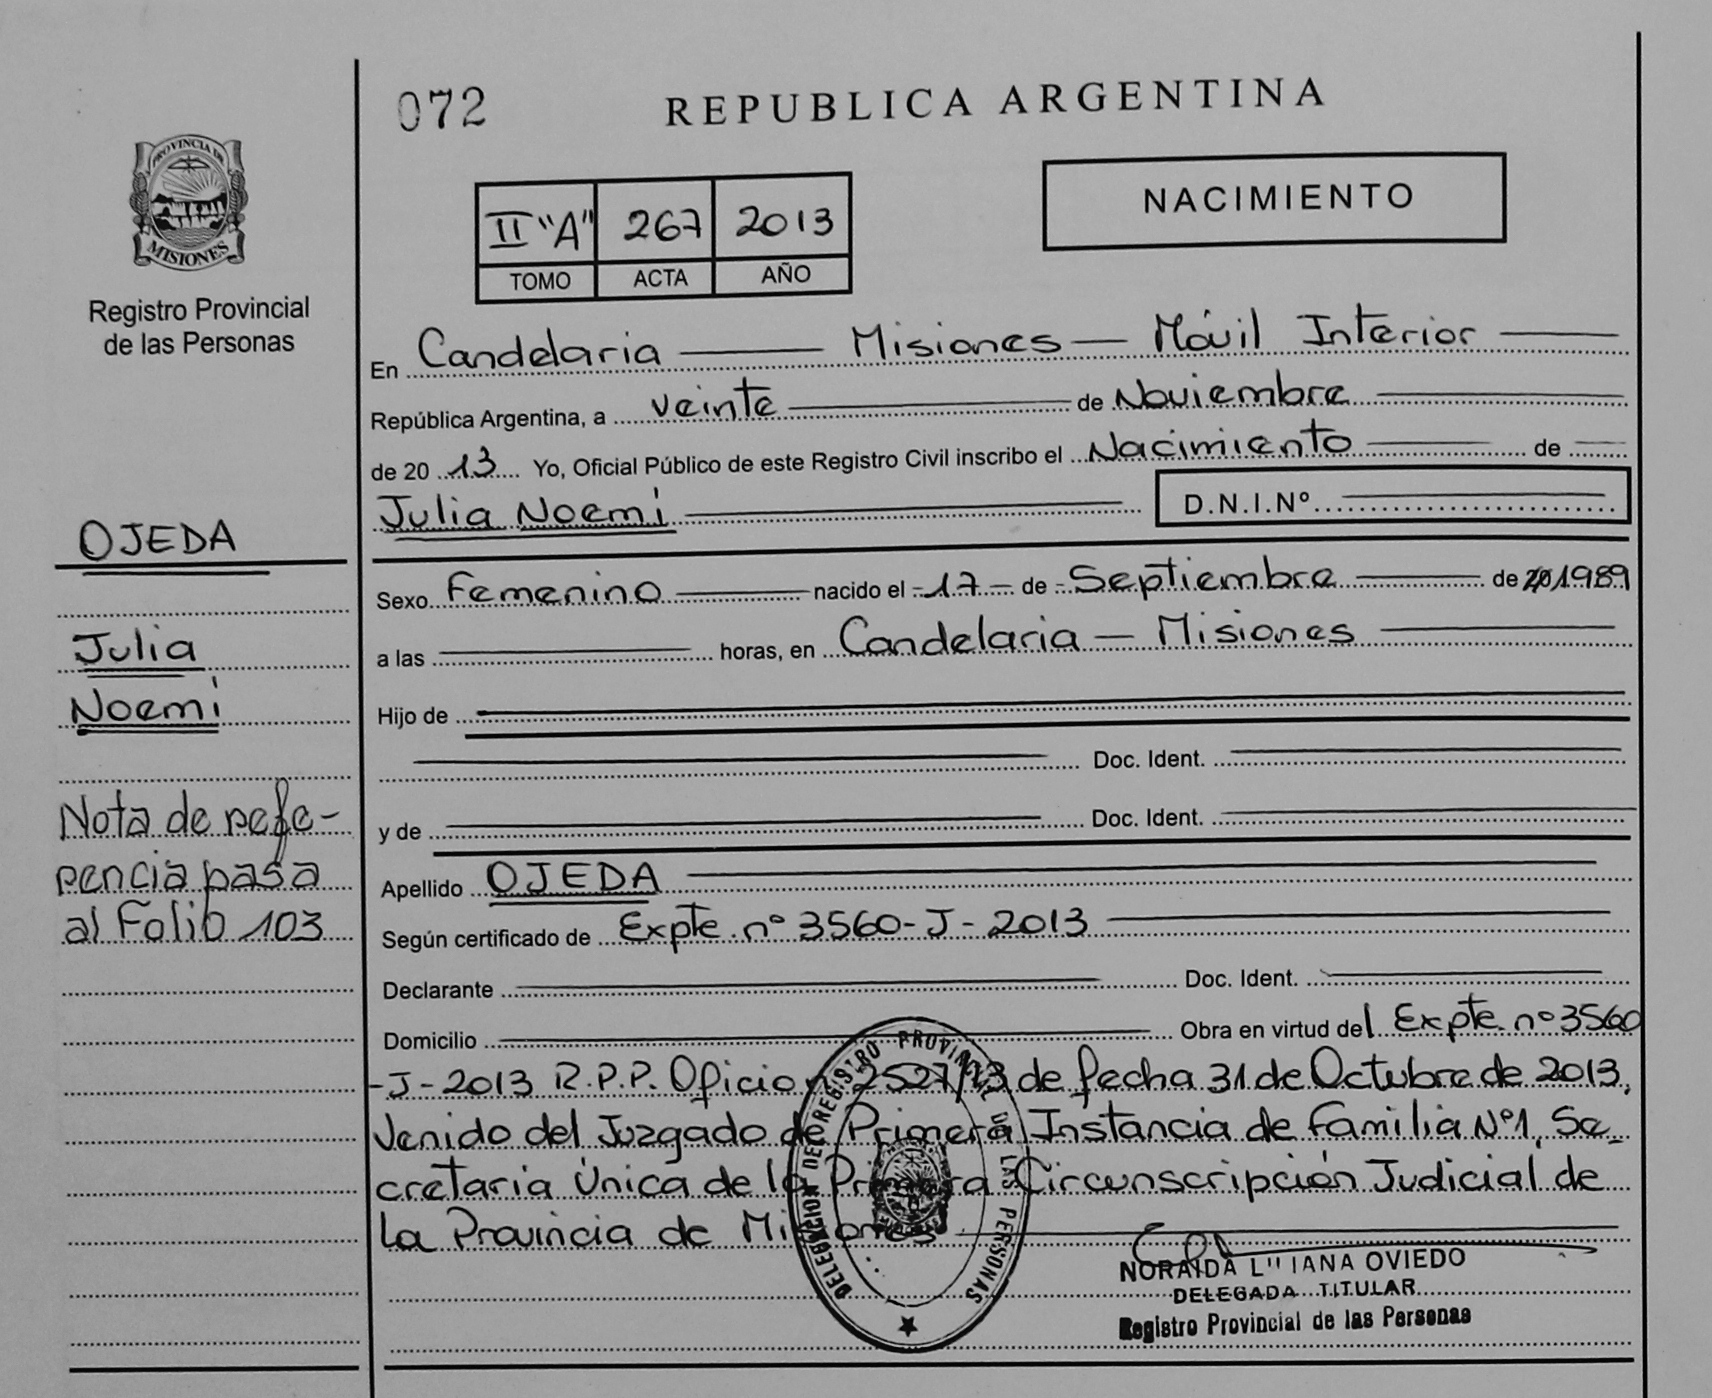 072
REPUBLICA ARGENTINA
PROVINCIA DE
MISIONES
Registro Provincial
de las Personas
II "A" 267 2013
TOMO ACTA AÑO
NACIMIENTO
En Candelaria — Misiones — Móvil Interior
República Argentina, a veinte de Noviembre
de 20 13 Yo, Oficial Público de este Registro Civil inscribo el Nacimiento de
Julia Noemí D.N.I.Nº
OJEDA
Julia
Noemí
Nota de refe-
rencia pasa
al Folio 103
Sexo Femenino nacido el 17 de Septiembre de 1989
a las horas, en Candelaria — Misiones
Hijo de
Doc. Ident.
y de Doc. Ident.
Apellido OJEDA
Según certificado de Expte. nº 3560-J-2013
Declarante Doc. Ident.
Domicilio Obra en virtud del Expte. nº 3560
-J-2013 R.P.P. Oficio nº 2527/13 de fecha 31 de Octubre de 2013,
Venido del Juzgado de Primera Instancia de Familia Nº1, Se-
cretaría Única de la Primera Circunscripción Judicial de
la Provincia de Misiones
DELEGACION DEL REGISTRO PROVINCIAL DE LAS PERSONAS
NORAIDA LILIANA OVIEDO
DELEGADA TITULAR
Registro Provincial de las Personas